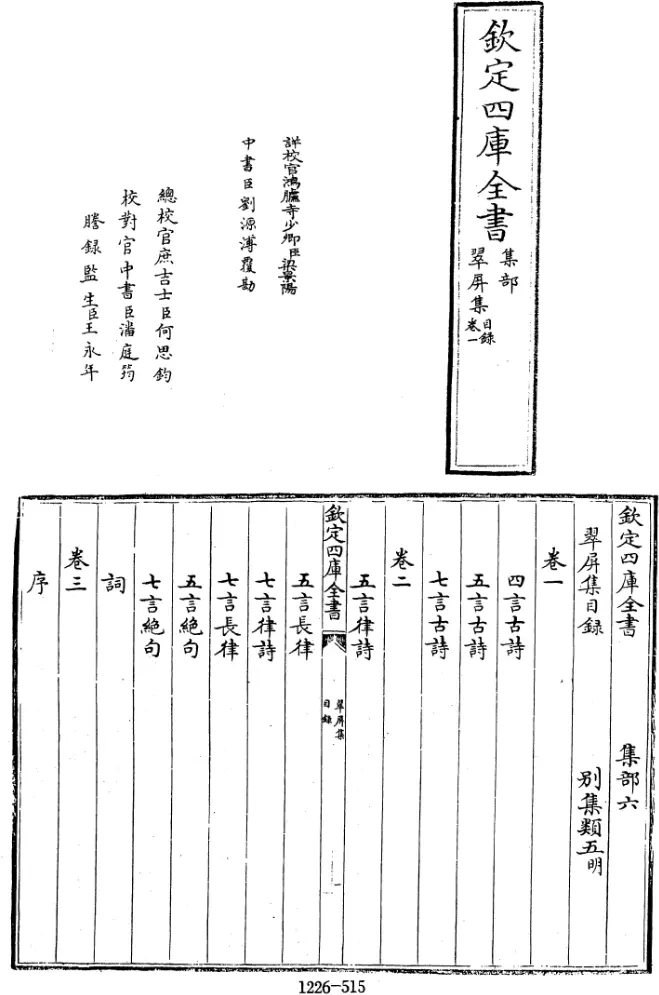 欽定四庫全書
集部
翠屏集
目録
卷一
詳校官鴻臚寺少卿臣梁景陽
中書臣劉源溥覆勘
總校官庶吉士臣何思鈞
校對官中書臣潘庭筠
謄録監生臣王永年
欽定四庫全書 集部六
翠屏集目録 別集類五明
卷一
四言古詩
五言古詩
七言古詩
卷二
五言律詩
欽定四庫全書
翠屏集
目録
五言長律
七言律詩
七言長律
五言絶句
七言絶句
詞
卷三
序
1226-515